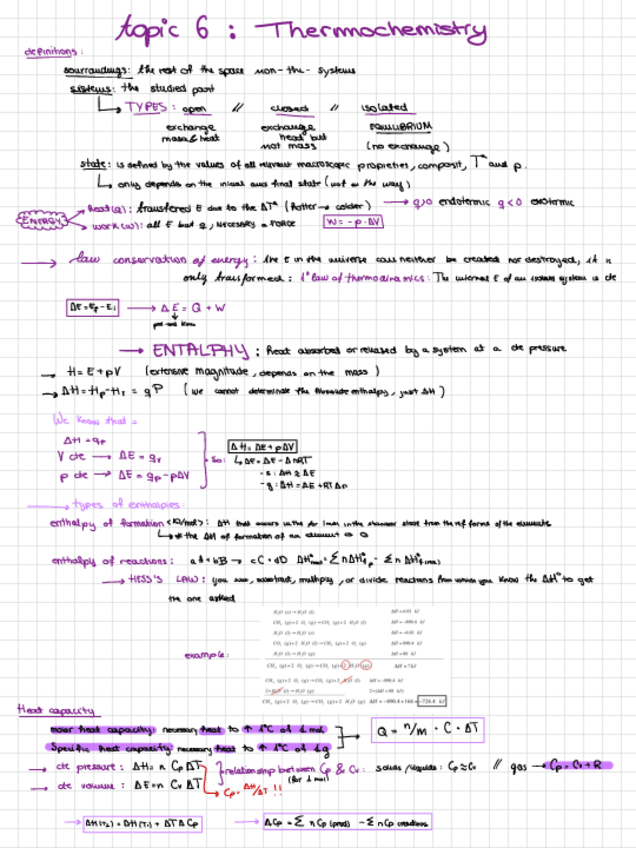 topic 6 : Thermochemistry
definitions:
sourroundings: the rest of the space non-the-systems
sistems: the studied part
↳ TYPES: open // closed // isolated
exchange exchange EQUILIBRIUM
mass & heat heat but (no exchange)
not mass
state: is defined by the values of all relevant macroscopic propieties, composit, Tª and p.
↳ only depends on the inicial and final state (not on the way)
ENERGY
heat(q): transfered E due to the ΔTª (hotter → colder) → q>0 endotermic q<0 exotermic
work(w): all E but q, NECESSARY a FORCE W = -p·ΔV
→ law conservation of energy: the E in the universe can neither be created nor destroyed, it is
only transformed: 1st law of thermodinamics: The internal E of an isolated system is cte
ΔE = EF - Ei → ΔE = Q + W
→ ENTALPHY: Heat absorbed or released by a system at a cte pressure
→ H = E + pV (extensive magnitude, depends on the mass)
→ ΔH = HP - Hr = qP (we cannot determinate the absolute enthalpy, just ΔH)
We know that =
ΔH = qp
V cte → ΔE = qv
p cte → ΔE = qp - pΔV
so: ΔH = ΔE + pΔV
- s: ΔH ≈ ΔE
- g: ΔH = ΔE + RTΔn
→ types of enthalpies:
enthalpy of formation : ΔH that occurs in the for 1 mol in the standar state from the ref forms of the elements
↳ the ΔH of formation of an element = 0
enthalpy of reactions: aA + bB → cC + dD
→ HESS'S LAW: you sum, substract, multiply, or divide reactions from which you know the ΔHº to get
the one asked
example:
H₂O (s)→H₂O (l) ΔH=6.01 kJ
CH₄ (g)+2 O₂ (g)→CO₂ (g)+2 H₂O (l) ΔH = -890.4 kJ
H₂O (l)→H₂O (s) ΔH = -6.01 kJ
CO₂ (g)+2 H₂O (l)→CH₄ (g)+2 O₂ (g) ΔH = 890.4 kJ
H₂O (l)→H₂O (g) ΔH=88 kJ
CH₄ (g)+2 O₂ (g)→CO₂ (g)+2 H₂O (g) ΔH = ? kJ
CH₄ (g)+2 O₂ (g)→CO₂ (g)+2 H₂O (l) ΔH = -890.4 kJ
2×H₂O (l)→H₂O (g) 2×(ΔH=88 kJ)
CH₄ (g)+2 O₂ (g)→CO₂ (g)+2 H₂O (g) ΔH = -890.4+166 = -724.4 kJ
Heat capacity
molar heat capacity: necessary heat to ↑ 1ºC of 1 mol
Specific heat capacity: necessary heat to ↑ 1ºC of 1g
Q = n/m · C · ΔT
→ cte pressure: ΔH = n Cp ΔT
→ cte volume: ΔE = n Cv ΔT
relationship between Cp & Cv: solids/liquids: Cp ≈ Cv // gas → Cp = Cv + R
(for 1 mol)
→ Cp = ΔH/ΔT !!
→ ΔH(T2) = ΔH(T1) + ΔT Δ Cp → ΔCp = Σ n Cp (prod) - Σ n Cp reactions